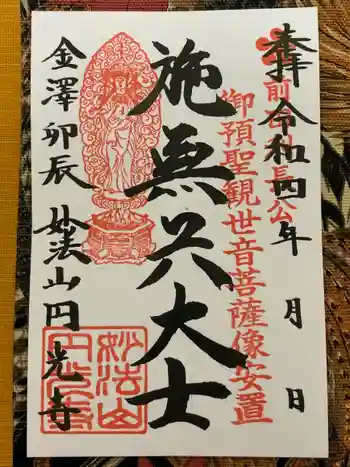 奉拝 令和四年 月 日
前田 長公
御預聖観世音菩薩像安置
施無畏大士
金澤卯辰 妙法山円光寺
妙法山
円光寺